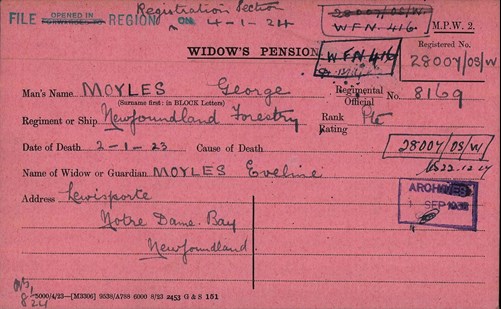 Registration Section
FILE OPENED IN REGION ON 4-1-24
FORWARDED TO
28007/OS/W
WFN.416.
M.P.W. 2.
WIDOW'S PENSION
WFN.416
Registered No.
28007/OS/W
Man's Name MOYLES George
(Surname first: in BLOCK Letters)
Regimental Official No. 8169
Regiment or Ship Newfoundland Forestry
Rank Rating Pte
Date of Death 2-1-23 Cause of Death
28007/OS/W
22.12.47
Name of Widow or Guardian MOYLES Eveline
Address Lewisporte
ARCHIVES
1 SEP 1932
Notre Dame Bay
Newfoundland.
5000/4/23—[M3306] 9538/A738 6000 8/23 2453 G & S 151
824